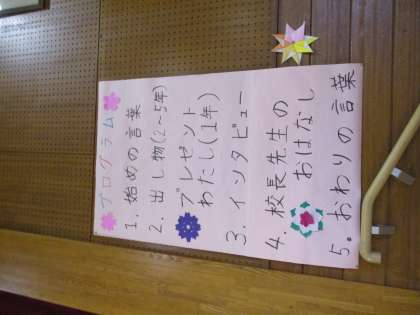 プログラム
1. 始めの言葉
2. 出し物(2〜5年)
プレゼント
わたし(1年)
3. インタビュー
4. 校長先生の
おはなし
5. おわりの言葉